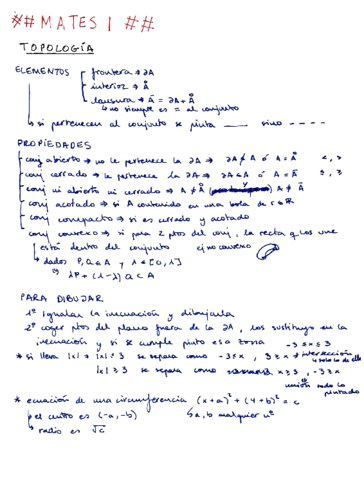 ## MATES I ##
TOPOLOGÍA
ELEMENTOS
frontera → ∂A
interior → Å
clausura → Ā = ∂A + Å
↳ no siempre es = al conjunto
↳ si pertenecen al conjunto se pinta ___ sino ----
PROPIEDADES
conj abierto → no le pertenece la ∂A → ∂A ⊄ A ó A = Å <, >
conj cerrado → le pertenece la ∂A → ∂A ⊆ A ó A = Ā ≤, ≥
conj ni abierto ni cerrado → A ≠ Å A ≠ Ā
conj acotado → si A contenido en una bola de r ∈ ℝ
conj compacto → si es cerrado y acotado
conj convexo → si para 2 ptos del conj, la recta que los une
está dentro del conjunto ej no convexo
↳ dados P, Q ∈ A y λ ∈ [0, 1]
↳ λP + (1-λ) Q ⊂ A
PARA DIBUJAR
1º igualar la inecuación y dibujarla
2º coger ptos del plano fuera de la ∂A, los sustituyo en la
inecuación y si se cumple pinto esa zona
* si lleva |x| → |x| ≤ 3 se separa como -3 ≤ x, 3 ≥ x → intersección
-3 ≤ x ≤ 3
|x| ≥ 3 se separa como x ≥ 3, -3 ≥ x
unión todo lo pintado
* ecuación de una circunferencia (x+a)² + (y+b)² = c
el centro es (-a, -b) ↳ a, b cualquier nº
↳ radio es √c